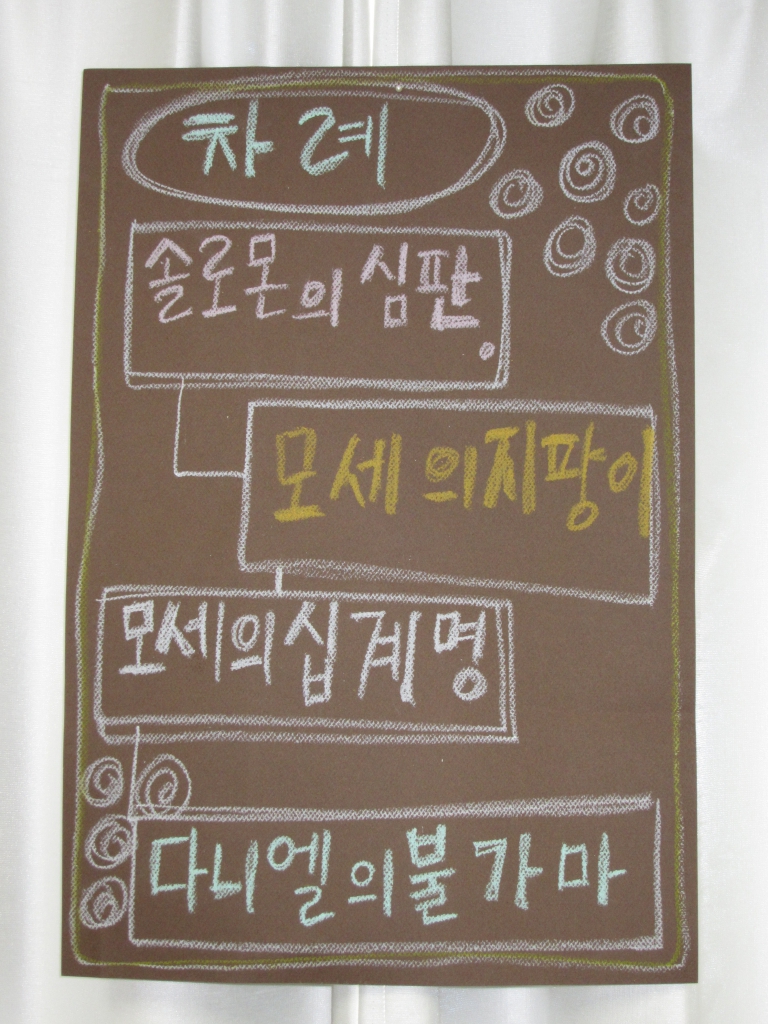 차례
솔로몬의 심판.
모세의지팡이
모세의십계명
다니엘의불가마